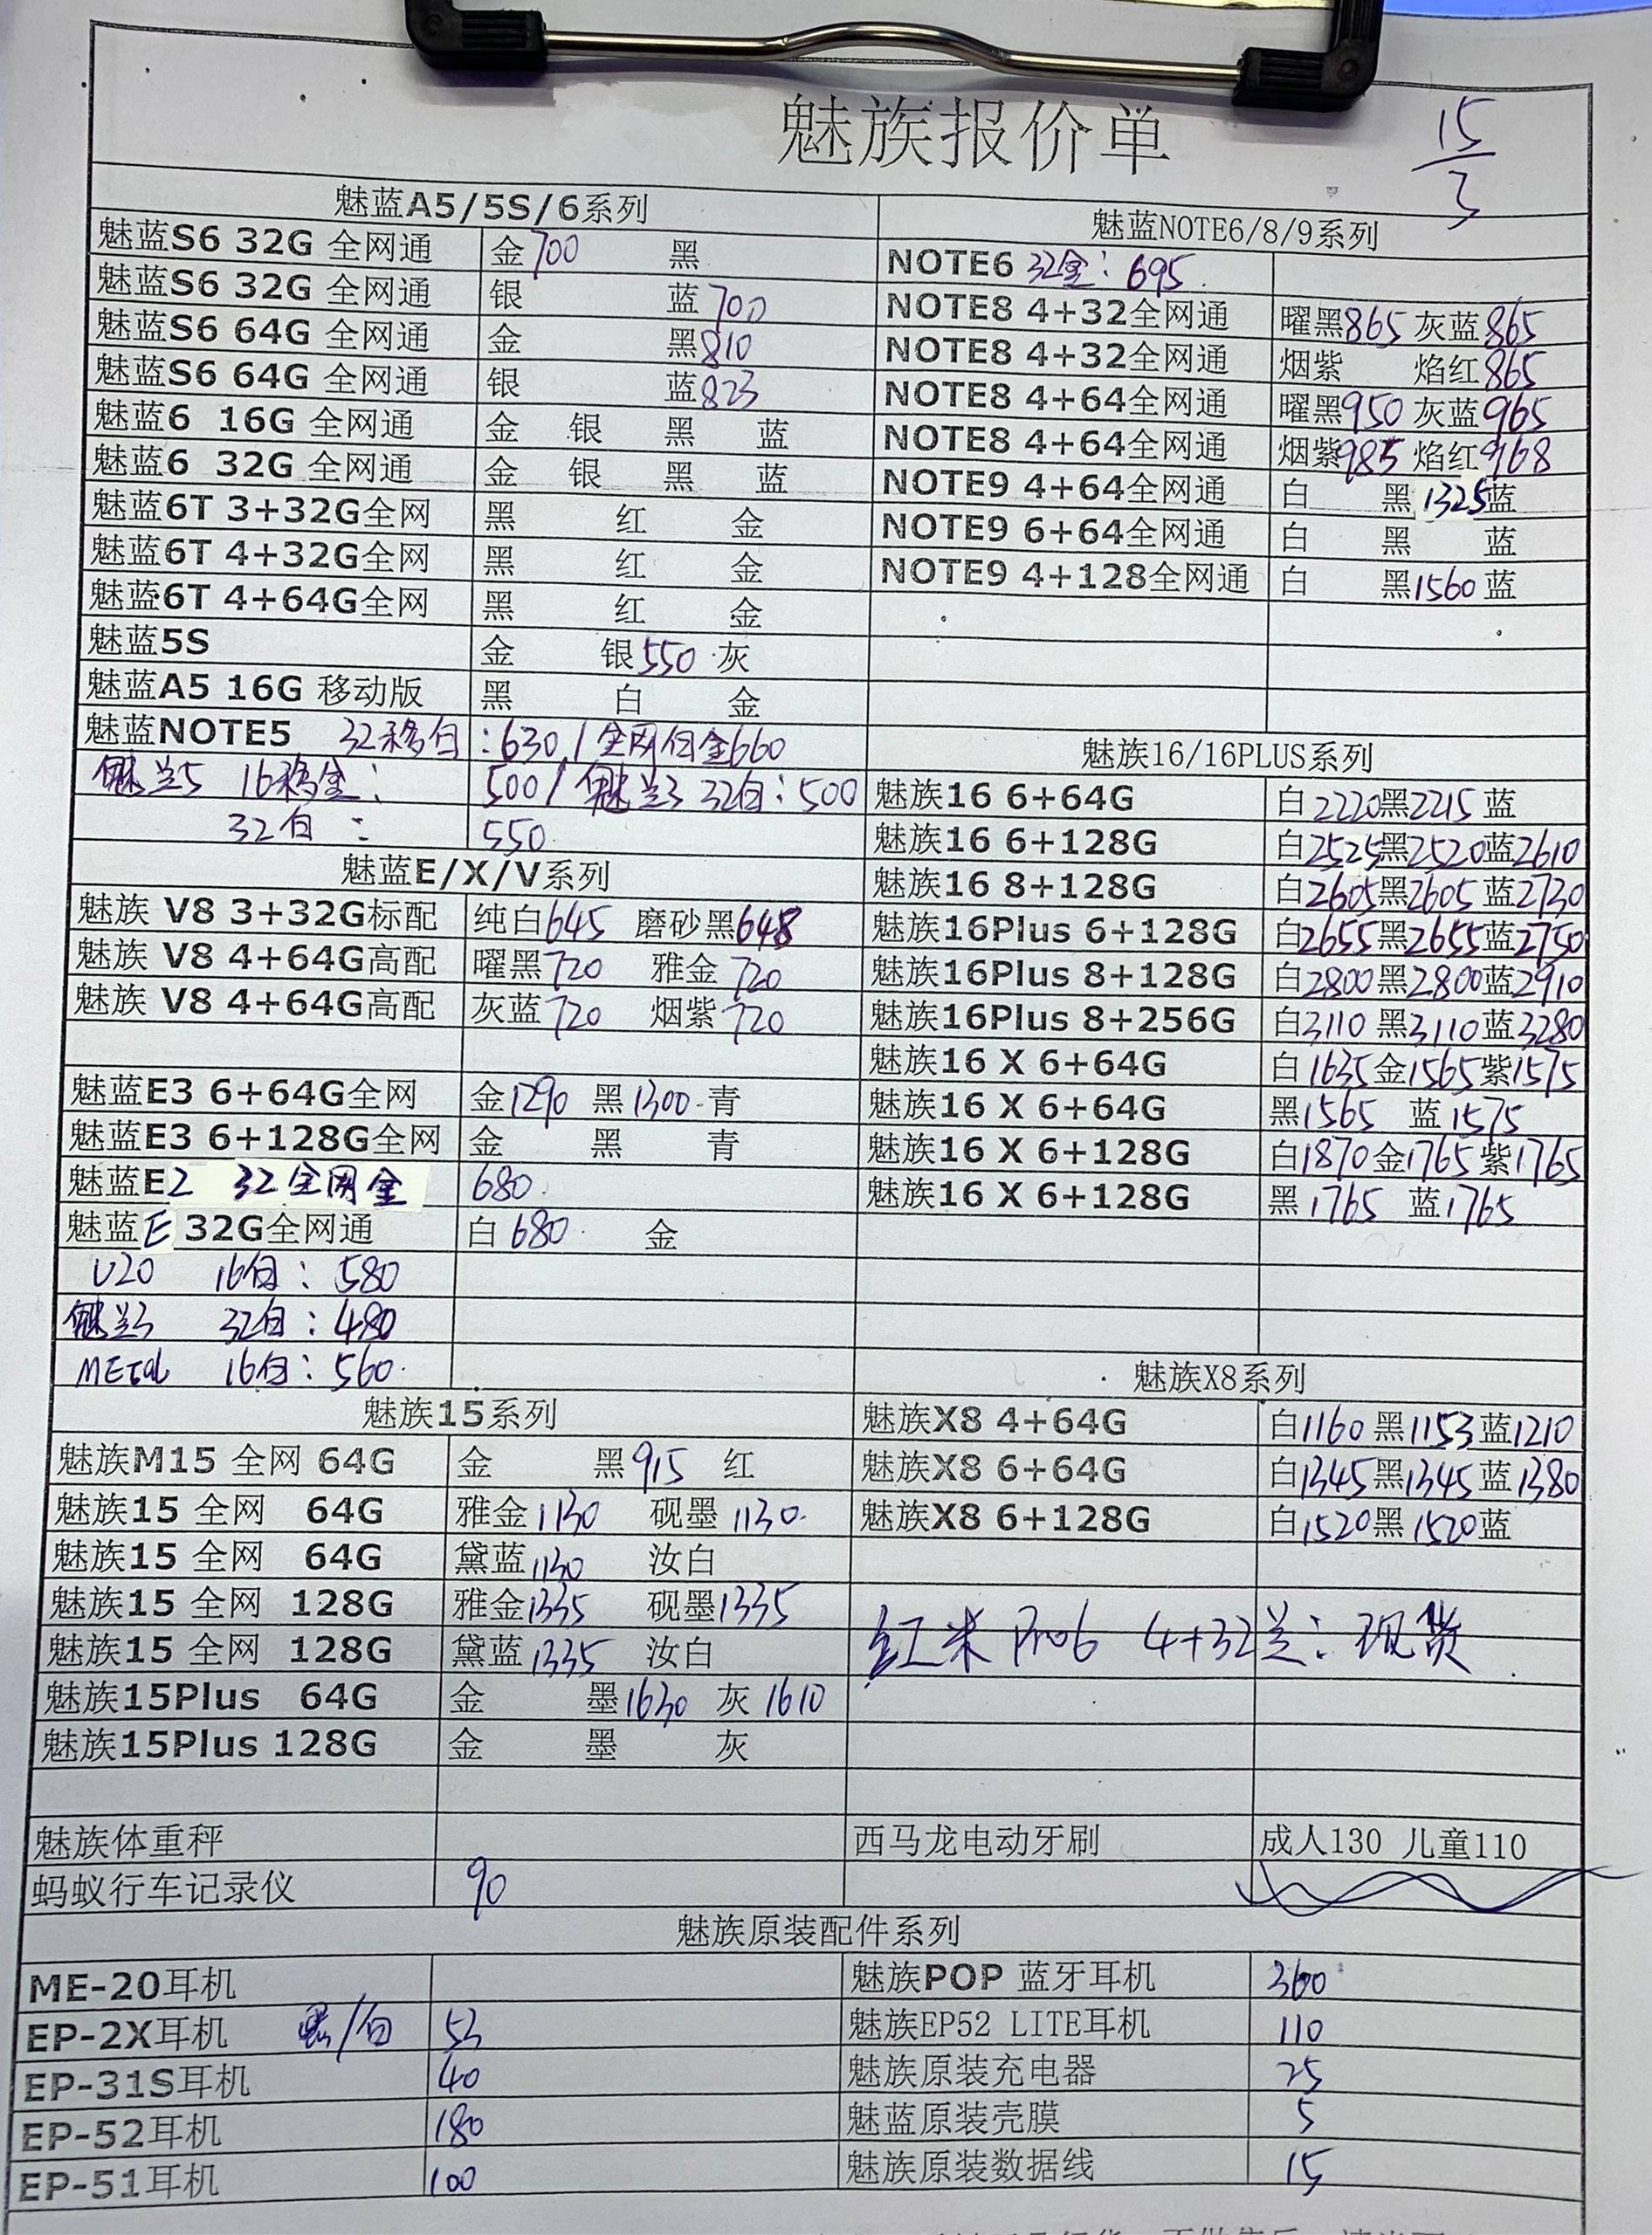 魅族报价单
15/3
魅蓝A5/5S/6系列
魅蓝S6 32G 全网通 金700 黑
魅蓝S6 32G 全网通 银 蓝700
魅蓝S6 64G 全网通 金 黑810
魅蓝S6 64G 全网通 银 蓝823
魅蓝6 16G 全网通 金 银 黑 蓝
魅蓝6 32G 全网通 金 银 黑 蓝
魅蓝6T 3+32G全网 黑 红 金
魅蓝6T 4+32G全网 黑 红 金
魅蓝6T 4+64G全网 黑 红 金
魅蓝5S 金 银550 灰
魅蓝A5 16G 移动版 黑 白 金
魅蓝NOTE5 32移白:630/全网白金660
魅兰5 16移金: 500/魅兰3 32白:500
32白: 550
魅蓝E/X/V系列
魅族 V8 3+32G标配 纯白645 磨砂黑648
魅族 V8 4+64G高配 曜黑720 雅金720
魅族 V8 4+64G高配 灰蓝720 烟紫720
魅蓝E3 6+64G全网 金1290 黑1300 青
魅蓝E3 6+128G全网 金 黑 青
魅蓝E2 32全网金 680
魅蓝E 32G全网通 白680 金
U20 16白:580
魅兰3 32白:480
METal 16白:560
魅族15系列
魅族M15 全网 64G 金 黑915 红
魅族15 全网 64G 雅金1130 砚墨1130
魅族15 全网 64G 黛蓝1130 汝白
魅族15 全网 128G 雅金1335 砚墨1335
魅族15 全网 128G 黛蓝1335 汝白
魅族15Plus 64G 金 墨1630 灰1610
魅族15Plus 128G 金 墨 灰
魅族体重秤
蚂蚁行车记录仪 90
魅蓝NOTE6/8/9系列
NOTE6 32金:695
NOTE8 4+32全网通 曜黑865 灰蓝865
NOTE8 4+32全网通 烟紫 焰红865
NOTE8 4+64全网通 曜黑950 灰蓝965
NOTE8 4+64全网通 烟紫985 焰红968
NOTE9 4+64全网通 白 黑1325蓝
NOTE9 6+64全网通 白 黑 蓝
NOTE9 4+128全网通 白 黑1560 蓝
魅族16/16PLUS系列
魅族16 6+64G 白2220黑2215 蓝
魅族16 6+128G 白2525黑2520蓝2610
魅族16 8+128G 白2605黑2605 蓝2730
魅族16Plus 6+128G 白2655黑2655蓝2750
魅族16Plus 8+128G 白2800黑2800蓝2910
魅族16Plus 8+256G 白3110 黑3110蓝3280
魅族16 X 6+64G 白1635金1565紫1575
魅族16 X 6+64G 黑1565 蓝1575
魅族16 X 6+128G 白1870金1765紫1765
魅族16 X 6+128G 黑1765 蓝1765
魅族X8系列
魅族X8 4+64G 白1160 黑1153蓝1210
魅族X8 6+64G 白1345黑1345 蓝1380
魅族X8 6+128G 白1520黑1520蓝
红米 Pro6 4+32兰:现货
西马龙电动牙刷 成人130 儿童110
魅族原装配件系列
ME-20耳机
EP-2X耳机 黑/白 53
EP-31S耳机 40
EP-52耳机 180
EP-51耳机 100
魅族POP 蓝牙耳机 360
魅族EP52 LITE耳机 110
魅族原装充电器 25
魅蓝原装壳膜 5
魅族原装数据线 15